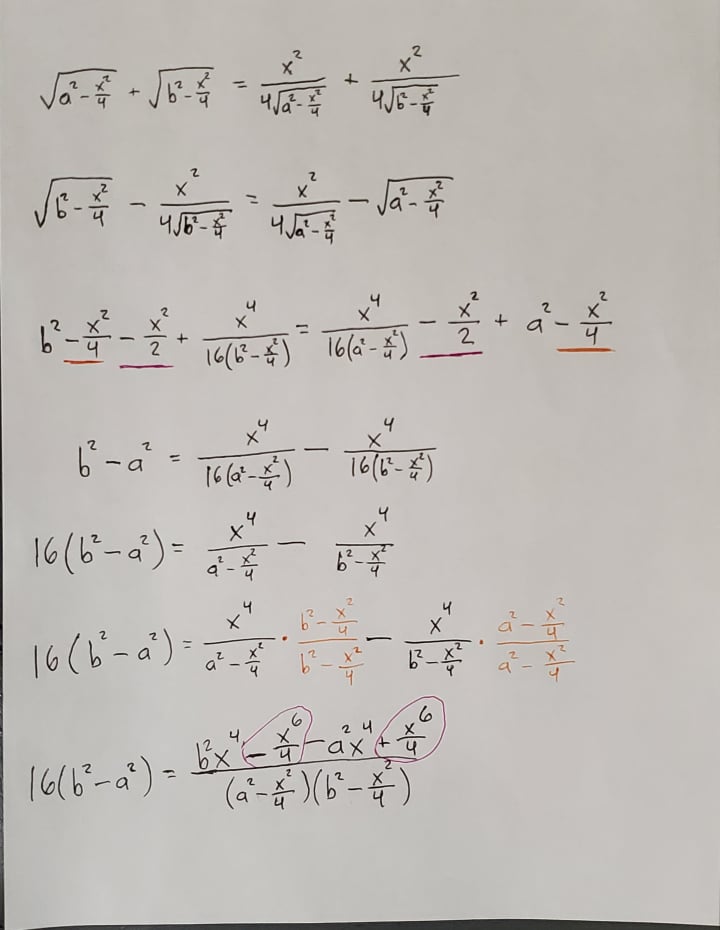 √(a² - x²/4) + √(b² - x²/4) = x²/(4√(a² - x²/4)) + x²/(4√(b² - x²/4))
√(b² - x²/4) - x²/(4√(b² - x²/4)) = x²/(4√(a² - x²/4)) - √(a² - x²/4)
b² - x²/4 - x²/2 + x⁴/(16(b² - x²/4)) = x⁴/(16(a² - x²/4)) - x²/2 + a² - x²/4
b² - a² = x⁴/(16(a² - x²/4)) - x⁴/(16(b² - x²/4))
16(b² - a²) = x⁴/(a² - x²/4) - x⁴/(b² - x²/4)
16(b² - a²) = x⁴/(a² - x²/4) · (b² - x²/4)/(b² - x²/4) - x⁴/(b² - x²/4) · (a² - x²/4)/(a² - x²/4)
16(b² - a²) = (b²x⁴ - x⁶/4 - a²x⁴ + x⁶/4)/((a² - x²/4)(b² - x²/4))